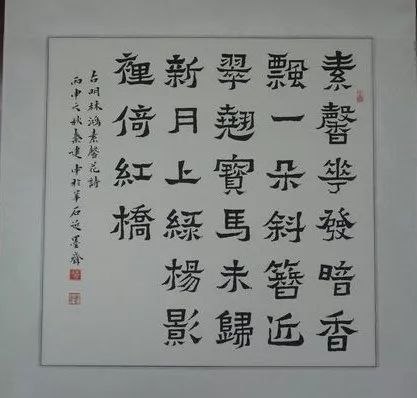 素馨華發暗香
飄一朵斜簪近
翠翹寶馬未歸
新月上綠楊影
裡倚紅橋
明林鴻素馨花詩
丙申之秋秦建中於羊石墨齋